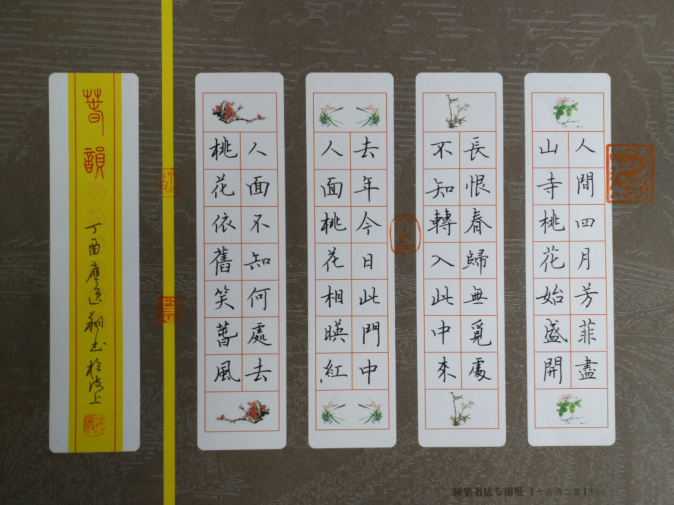 人間四月芳菲盡
山寺桃花始盛開
長恨春歸無覓處
不知轉入此中來
去年今日此門中
人面桃花相暎紅
人面不知何處去
桃花依舊笑萅風
萅韻
丁酉應逸翔书於海上
硬笔书法专用纸【七言诗二首】